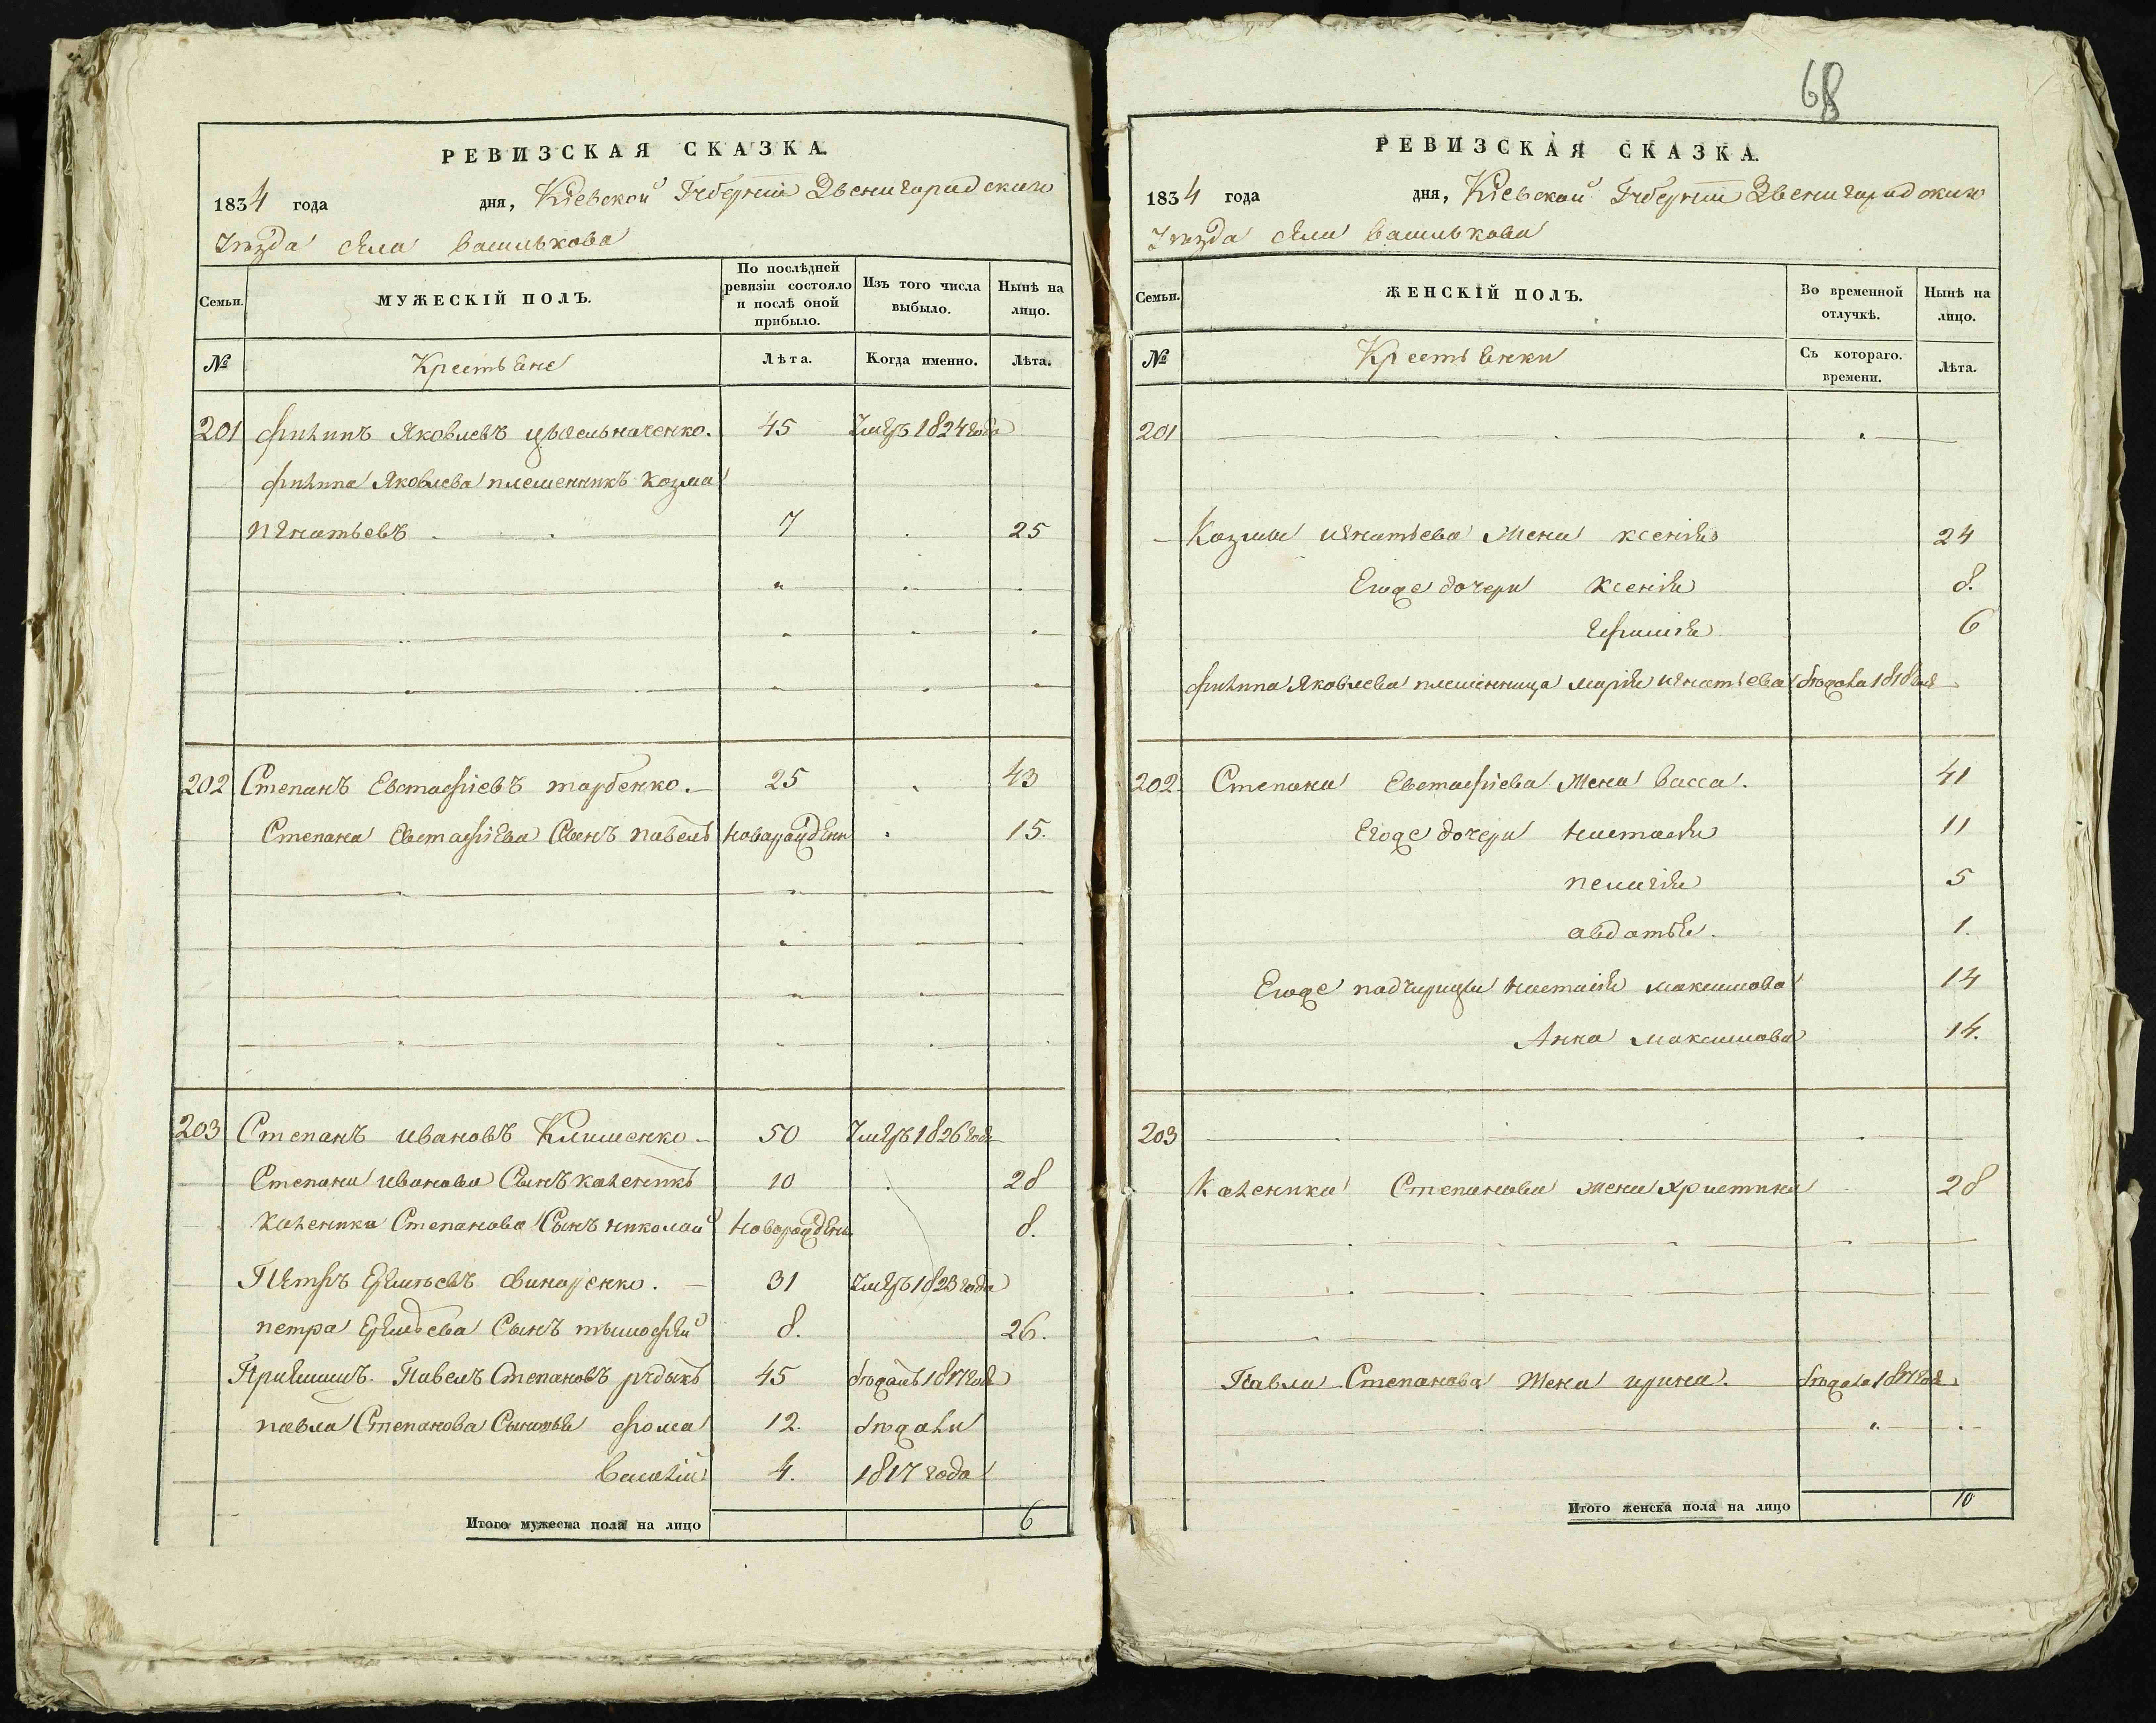 РЕВИЗСКАЯ СКАЗКА.
1834 года дня, Кіевской Губерніи Звенигородскаго
Уѣзда села Василькова
Семьи. МУЖЕСКІЙ ПОЛЪ. По послѣдней ревизіи состояло и послѣ оной прибыло. Изъ того числа выбыло. Нынѣ на лицо.
№ Крестьяне Лѣта. Когда именно. Лѣта.
201 Филипъ Яковлевъ 45 Умеръ 1824 года
Филипа Яковлева племенникъ Козма
Игнатьевъ 7 25
202 Степанъ Евстафіевъ тарбенко. 25 43
Степана Евстафіева Сынъ павелъ новорожденъ 15.
203 Степанъ ивановъ Клименко 50 Умеръ 1826 года
Степана иванова Сынъ каленикъ 10 28
каленика Степанова Сынъ николай новорожденъ 8.
Петръ 31 Умеръ 1823 года
петра Сынъ тымофѣй 8. 26.
Павелъ Степановъ 45 бѣжалъ 1817 года
павла Степанова Сыновья фома 12. бѣжали
Василій 4. 1817 года
Итого мужеска пола на лицо 6
68
РЕВИЗСКАЯ СКАЗКА.
1834 года дня, Кіевской Губерніи Звенигородскаго
Уѣзда села Василькова
Семьи. ЖЕНСКІЙ ПОЛЪ. Во временной отлучкѣ. Нынѣ на лицо.
№ Крестьянки Съ котораго. времени. Лѣта.
201
Козмы игнатьева Жена ксенія 24
Егоже дочери Ксенія 8.
6
филипа Яковлева племенница марія игнатьева бѣжала 1818 года
202 Степана Евстафіева Жена васса. 41
Егоже дочери настасія 11
пелагія 5
авдотья. 1.
Егоже падчерицы настасія максимова 14
Анна максимова 14.
203
Каленика Степанова жена христина 28
Павла Степанова Жена ирина. бѣжала 1817 года
Итого женска пола на лицо 10